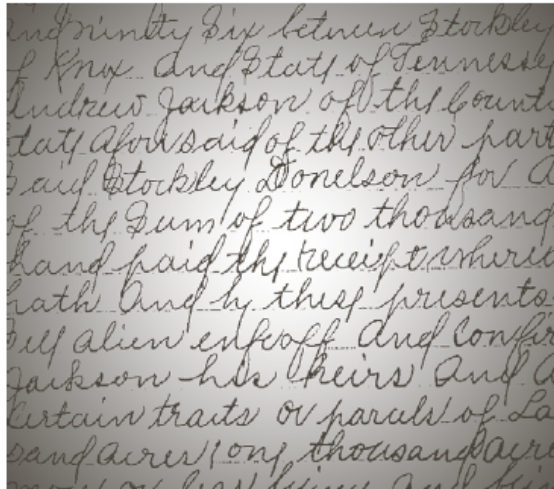 and ninety Six between Stockley
of Knox And State of Tennessee
Andrew Jackson of the Count
tate afousaid of the other par
Said Stockley Donelson for a
of the Sum of two thousand
hand paid the receipt where
hath And by these presents
Sell alien enfeoff And Confir
Jackson his heirs And A
Certain traits or parcels of La
sand acres, one thousand acre
more or less lying and bei